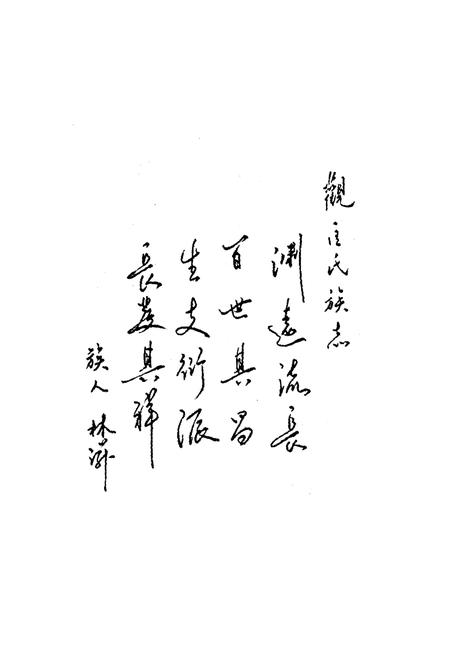 觀匡氏族志
渊遠流長
百世其昌
生支衍派
長發其祥
族人 林